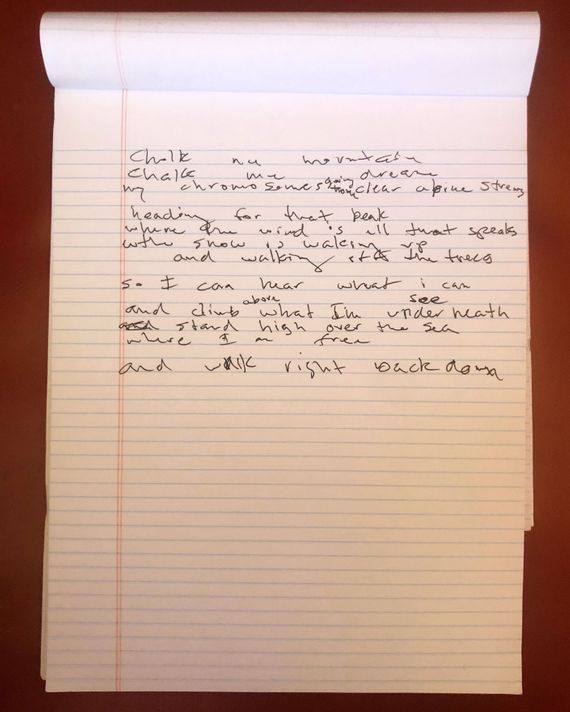 Chalk me mountain
Chalk me dream
my chromosomes going from clear alpine streams
heading for that peak
where the wind is all that speaks
the snow is waking up
and walking the trees
so I can hear what i can see
and climb above what I'm underneath
stand high over the sea
where I am free
and walk right back down